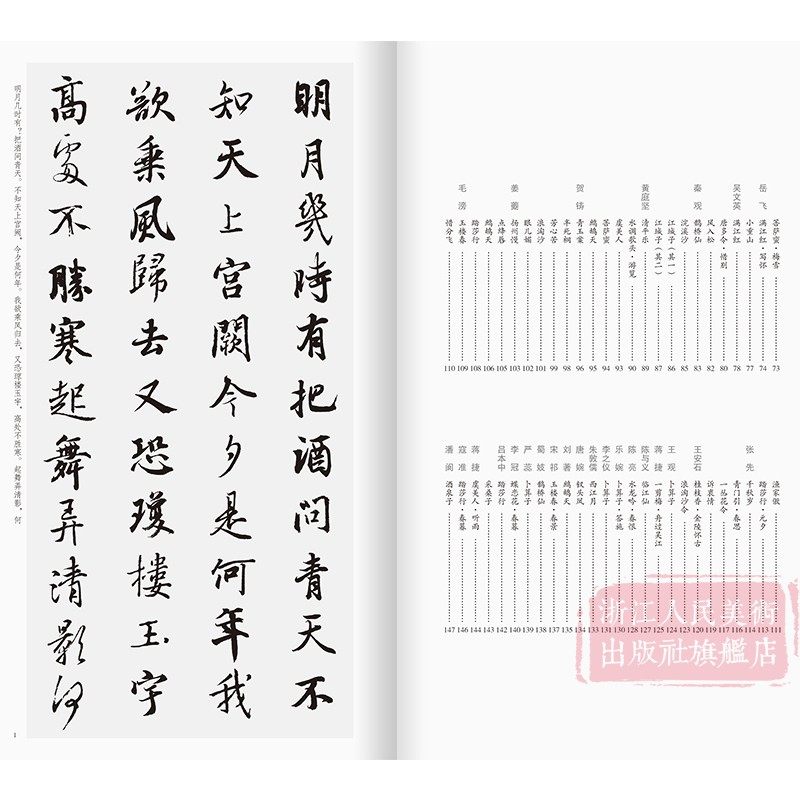 菩萨蛮·梅雪 73
岳飞 满江红·写怀 74
小重山 76
吴文英 满江红 78
唐多令·惜别 80
风入松 82
秦观 鹊桥仙 83
浣溪沙 86
江城子(其一) 87
江城子(其二) 89
黄庭坚 清平乐 90
水调歌头·游览 92
虞美人 93
菩萨蛮 94
鹧鸪天 95
贺铸 青玉案 96
半死桐 98
芳心苦 99
浪淘沙 101
眼儿媚 102
姜夔 扬州慢 103
点绛唇 105
鹧鸪天 106
踏莎行 108
毛滂 玉楼春 109
惜分飞 110
渔家傲 111
踏莎行·元夕 113
张先 千秋岁 114
青门引·春思 116
一丛花令 117
诉衷情 119
王安石 桂枝香·金陵怀古 120
浪淘沙令 123
王观 卜算子 124
蒋捷 一剪梅·舟过吴江 125
陈与义 临江仙 127
陈亮 水龙吟·春恨 128
乐婉 卜算子·答施 130
李之仪 卜算子 131
朱敦儒 西江月 133
唐婉 钗头凤 134
刘著 鹧鸪天 135
宋祁 玉楼春·春景 137
蜀妓 鹊桥仙 138
严蕊 卜算子
李冠 蝶恋花·春暮
吕本中 踏莎行 142
采桑子 143
蒋捷 虞美人·听雨 144
寇准 踏莎行·春暮 146
潘阆 酒泉子 147
浙江人民美術
出版社旗艦店
明月幾時有把酒問青天不
知天上宮闕今夕是何年我
欲乘風歸去又恐瓊樓玉宇
高處不勝寒起舞弄清影何
明月几时有？把酒问青天。不知天上宫阙，今夕是何年。我欲乘风归去，又恐琼楼玉宇，高处不胜寒。起舞弄清影，何
1